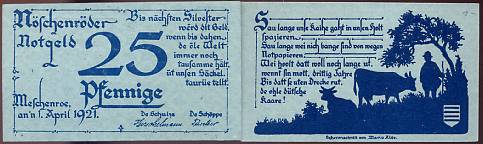 Nöschenröder
Notgeld
25
Pfennige
Meschenroe,
an'n 1. April 1921.
Bis nächsten Silvester
werd dit Geld,
wenn bis dahen
de ole Welt
immer noch
tausamme hält,
ut unsen Säckel
taurüe tellt.
De Schulze
De Schöppe
Sau lange unse Kaihe gaht in unsen Holt
spazieren,
Sau lange wei nich bange sind von wegen
Notpapieren.
Wei holt datt woll noch lange ut,
wennt sin mott, drittig Jahre
Bis datt se uten Drecke rut,
de ohle dütsche
Kaare!